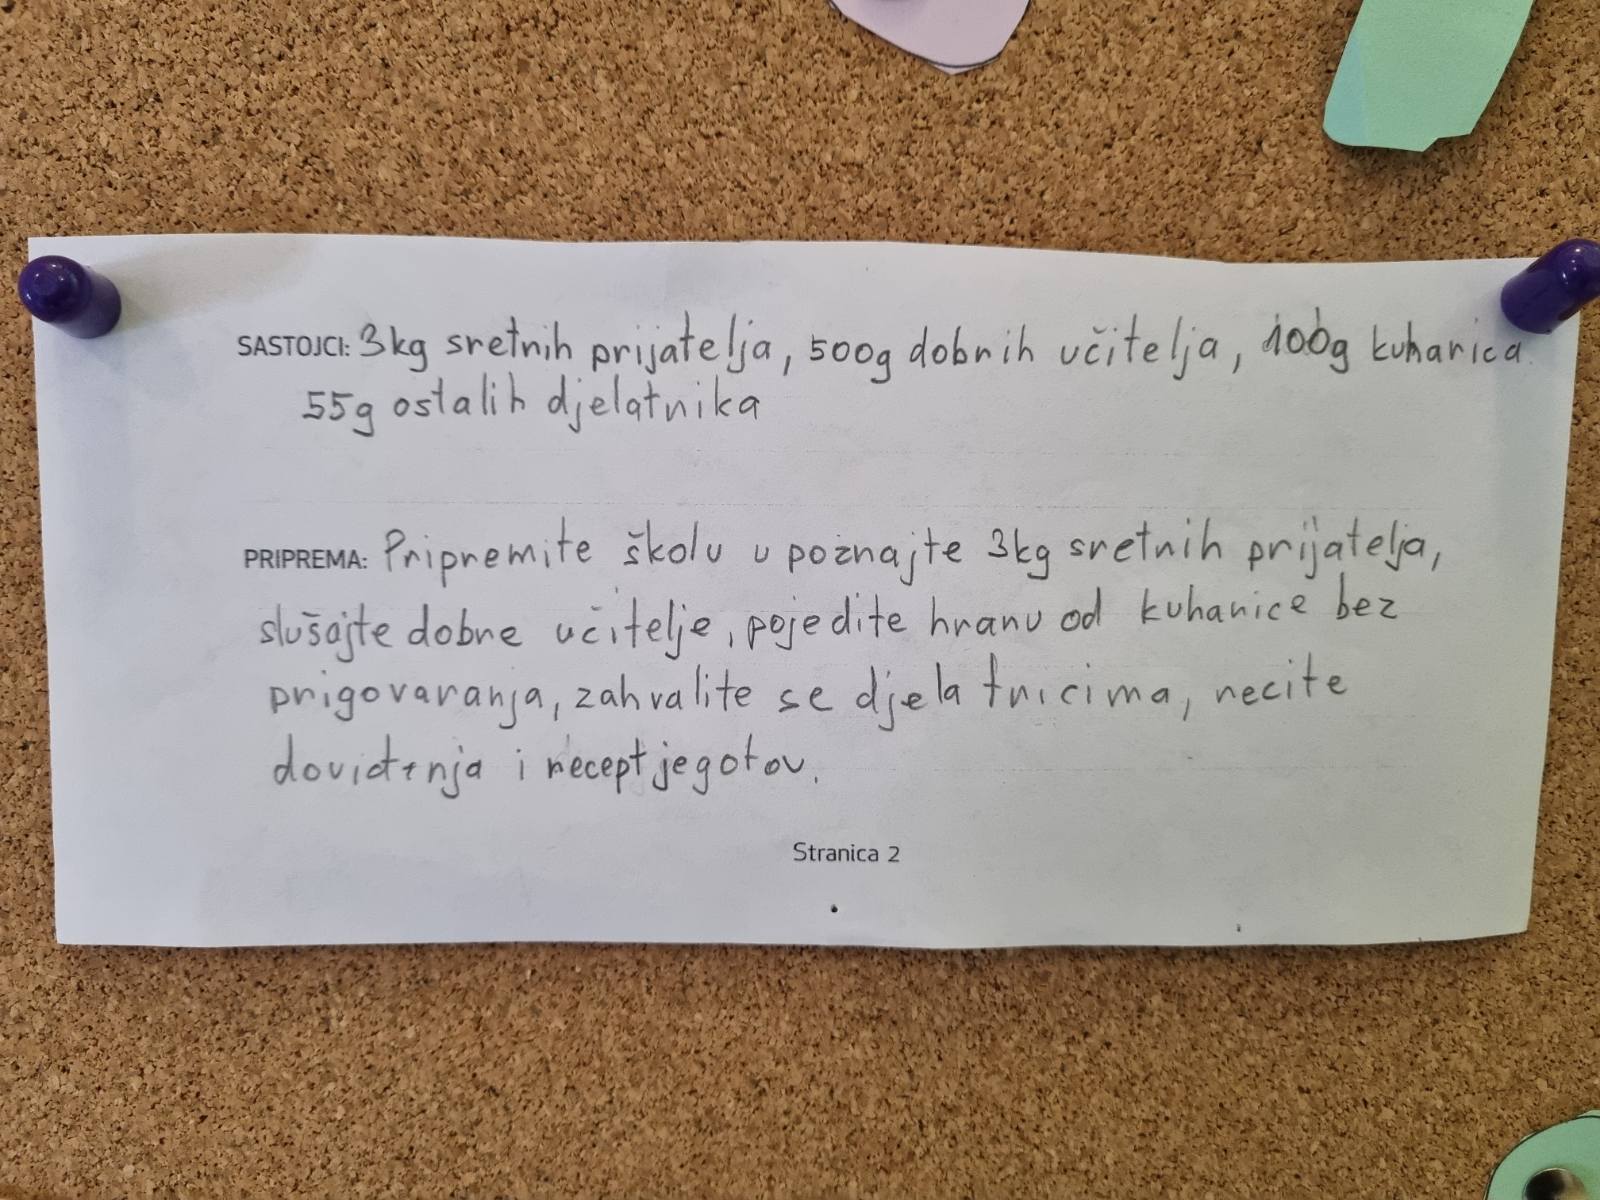 SASTOJCI: 3kg sretnih prijatelja, 500g dobnih učitelja, 100g kuharica
55g ostalih djelatnika
PRIPREMA: Pripremite školu upoznajte 3kg sretnih prijatelja,
slušajte dobre učitelje, pojedite hranu od kuharice bez
prigovaranja, zahvalite se djelatnicima, recite
doviđenja i recept je gotov.
Stranica 2